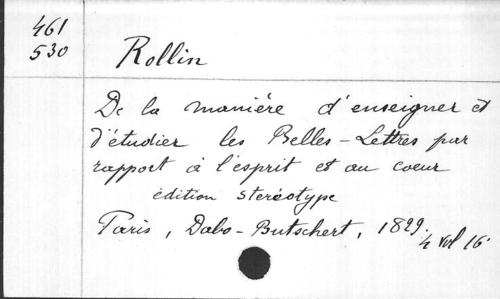 461
530
Rollin
De la manière d'enseigner et
d'étudier les Belles-Lettres par
rapport à l'esprit et au coeur
édition stéréotype
Paris, Dabo-Butschert, 1829.
4 vol 16°